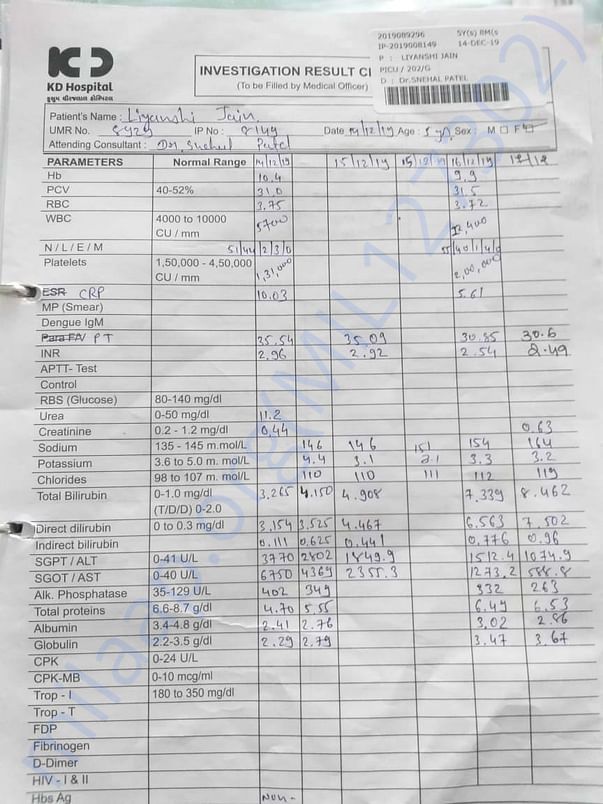 2019089296 5Y(s) 8M(s
IP-2019008149 14-DEC-19
P : LIYANSHI JAIN
PICU / 202/G
D : Dr.SNEHAL PATEL
KD Hospital
કુસુમ ધીરજલાલ હોસ્પિટલ
INVESTIGATION RESULT C
(To be Filled by Medical Officer)
Patient's Name : Liyanshi Jain.
UMR No. 8929 IP No : 8149 Date 14/12/19 Age : 5 yr Sex : M F
Attending Consultant : Dr. Snehal Patel
PARAMETERS Normal Range 14/12/19 15/12/19 15/12/19 16/12/19 17/12
Hb 10.4 9.9
PCV 40-52% 31.0 31.5
RBC 3.75 3.72
WBC 4000 to 10000 5700 12,400
CU / mm
N / L / E / M 51/44/2/3/0 55/40/1/4/0
Platelets 1,50,000 - 4,50,000 1,31,000 2,00,000
CU / mm
ESR CRP 10.03 5.61
MP (Smear)
Dengue IgM
Para F/V PT 35.54 35.09 30.85 30.6
INR 2.96 2.92 2.54 2.49
APTT- Test
Control
RBS (Glucose) 80-140 mg/dl
Urea 0-50 mg/dl 11.2
Creatinine 0.2 - 1.2 mg/dl 0.44 0.63
Sodium 135 - 145 m.mol/L 146 146 151 154 164
Potassium 3.6 to 5.0 m. mol/L 4.4 3.1 3.3 3.2
Chlorides 98 to 107 m. mol/L 110 110 111 112 119
Total Bilirubin 0-1.0 mg/dl 3.265 4.150 4.908 7.339 8.462
(T/D/D) 0-2.0
Direct dilirubin 0 to 0.3 mg/dl 3.154 3.525 4.467 6.563 7.502
Indirect bilirubin 0.111 0.625 0.441 0.776 0.96
SGPT / ALT 0-41 U/L 3770 2802 1849.9 1512.4 1074.9
SGOT / AST 0-40 U/L 6750 4369 2355.3 1273.2 588.8
Alk. Phosphatase 35-129 U/L 402 349 332 263
Total proteins 6.6-8.7 g/dl 4.70 5.55 6.49 6.53
Albumin 3.4-4.8 g/dl 2.41 2.76 3.02 2.86
Globulin 2.2-3.5 g/dl 2.29 2.79 3.47 3.67
CPK 0-24 U/L
CPK-MB 0-10 mcg/ml
Trop - I 180 to 350 mg/dl
Trop - T
FDP
Fibrinogen
D-Dimer
HIV - I & II
Hbs Ag Non-
milaap.org(MIL127302)